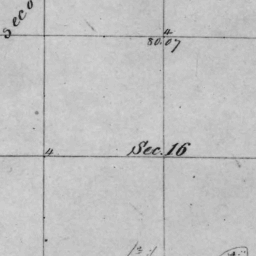 Seco
4
80.07
4
Sec. 16